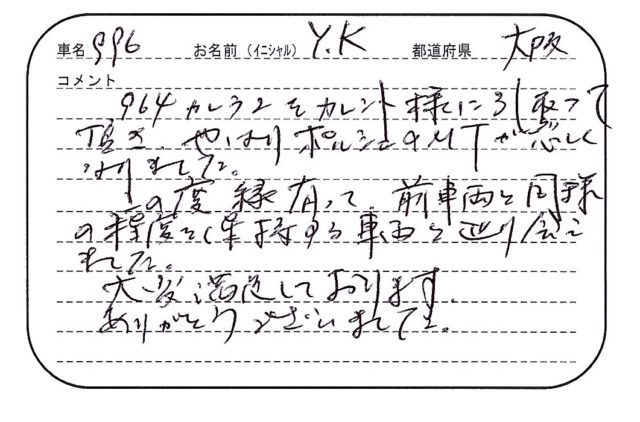 車名 996 お名前（イニシャル） Y.K 都道府県 大阪
コメント
964カレラ2をカレント様に引取って
頂き、やはりポルシェのMTが恋しく
なりました。
この度縁有って、前車両と同様
の程度を保持する車両と巡り会え
ました。
大変満足しております。
ありがとうございました。